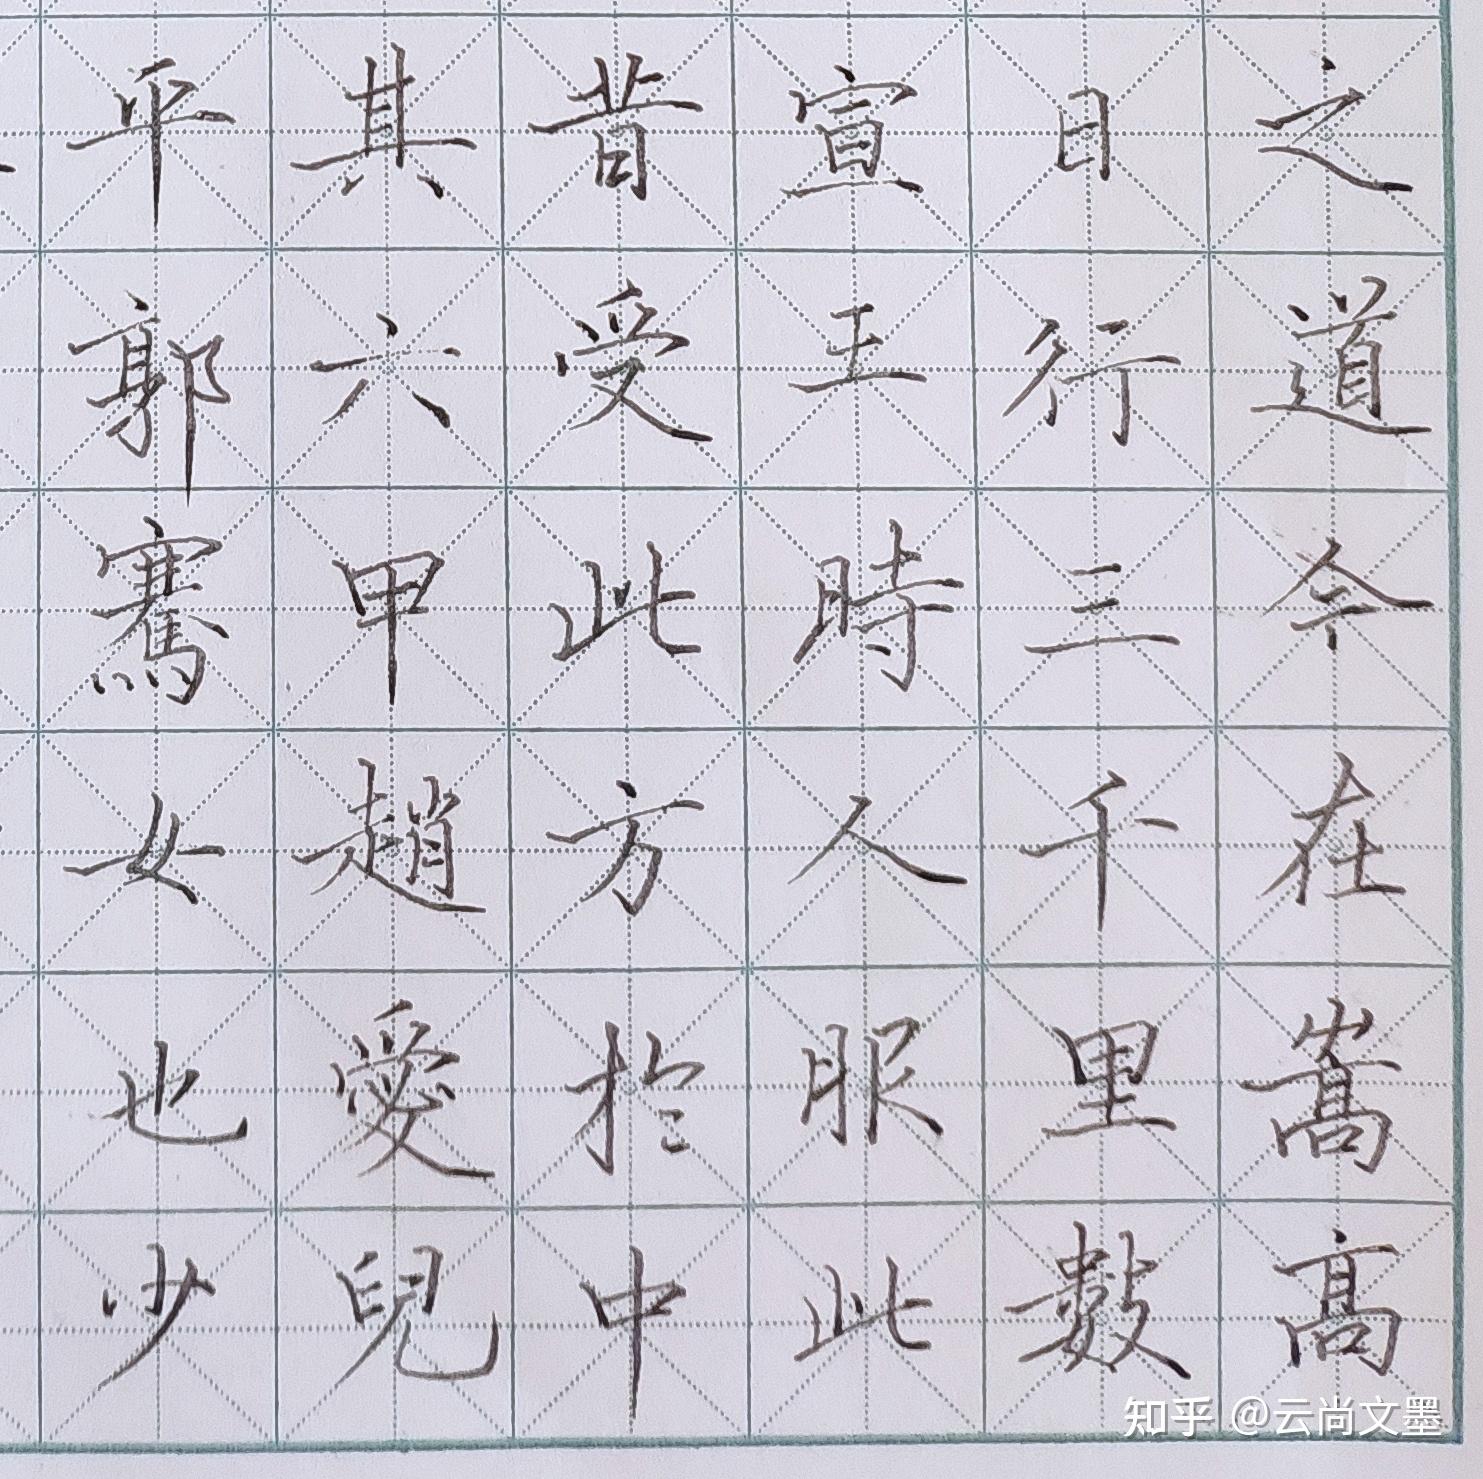 之道今在嵩高
日行三千里數
宣王時人服此
昔受此方於中
其六甲趙愛兒
平郭騫女也少
知乎 @云尚文墨